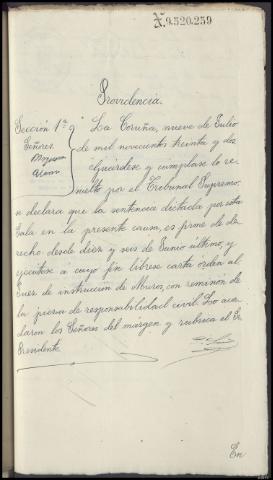 N.9.520.259
Providencia.
Sección 1ª La Coruña, nueve de Julio
Señores. de mil novecientos treinta y dos
guárdese y cúmplase lo re-
suelto por el Tribunal Supremo
se declara que la sentencia dictada por esta
Sala en la presente causa, es firme de de-
recho desde diez y seis de Junio último, y
ejecútese a cuyo fin líbrese carta órden al
Juez de instrucción de Muros, con remisión de
la pieza de responsabilidad civil. Lo acor-
daron los Señores del márgen y rubrica el Sr
Presidente.
En